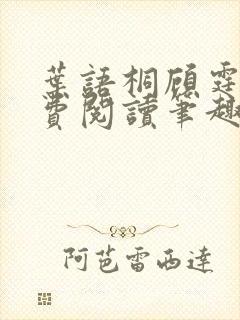 葉語桐顧霆
費閱讀筆趣
阿芭雷西達